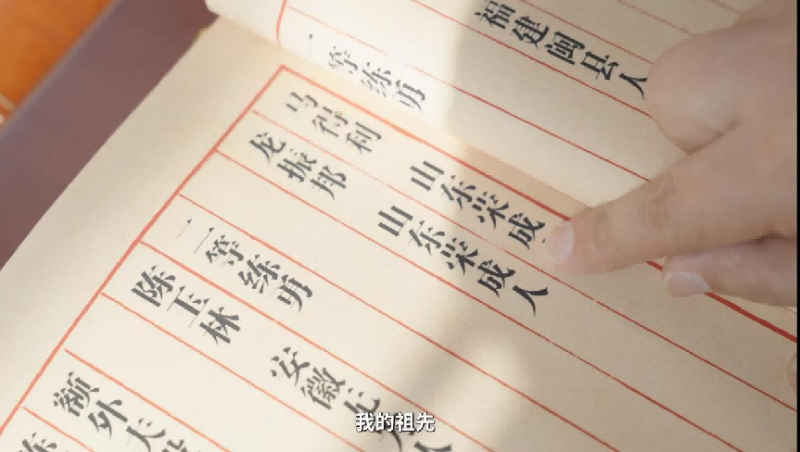 福建闽县人
一等练勇
马得利 山东荣成
龙振邦 山东荣成人
二等练勇
陈玉林 安徽
额外
我的祖先